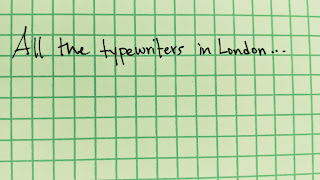 All the typewriters in London...